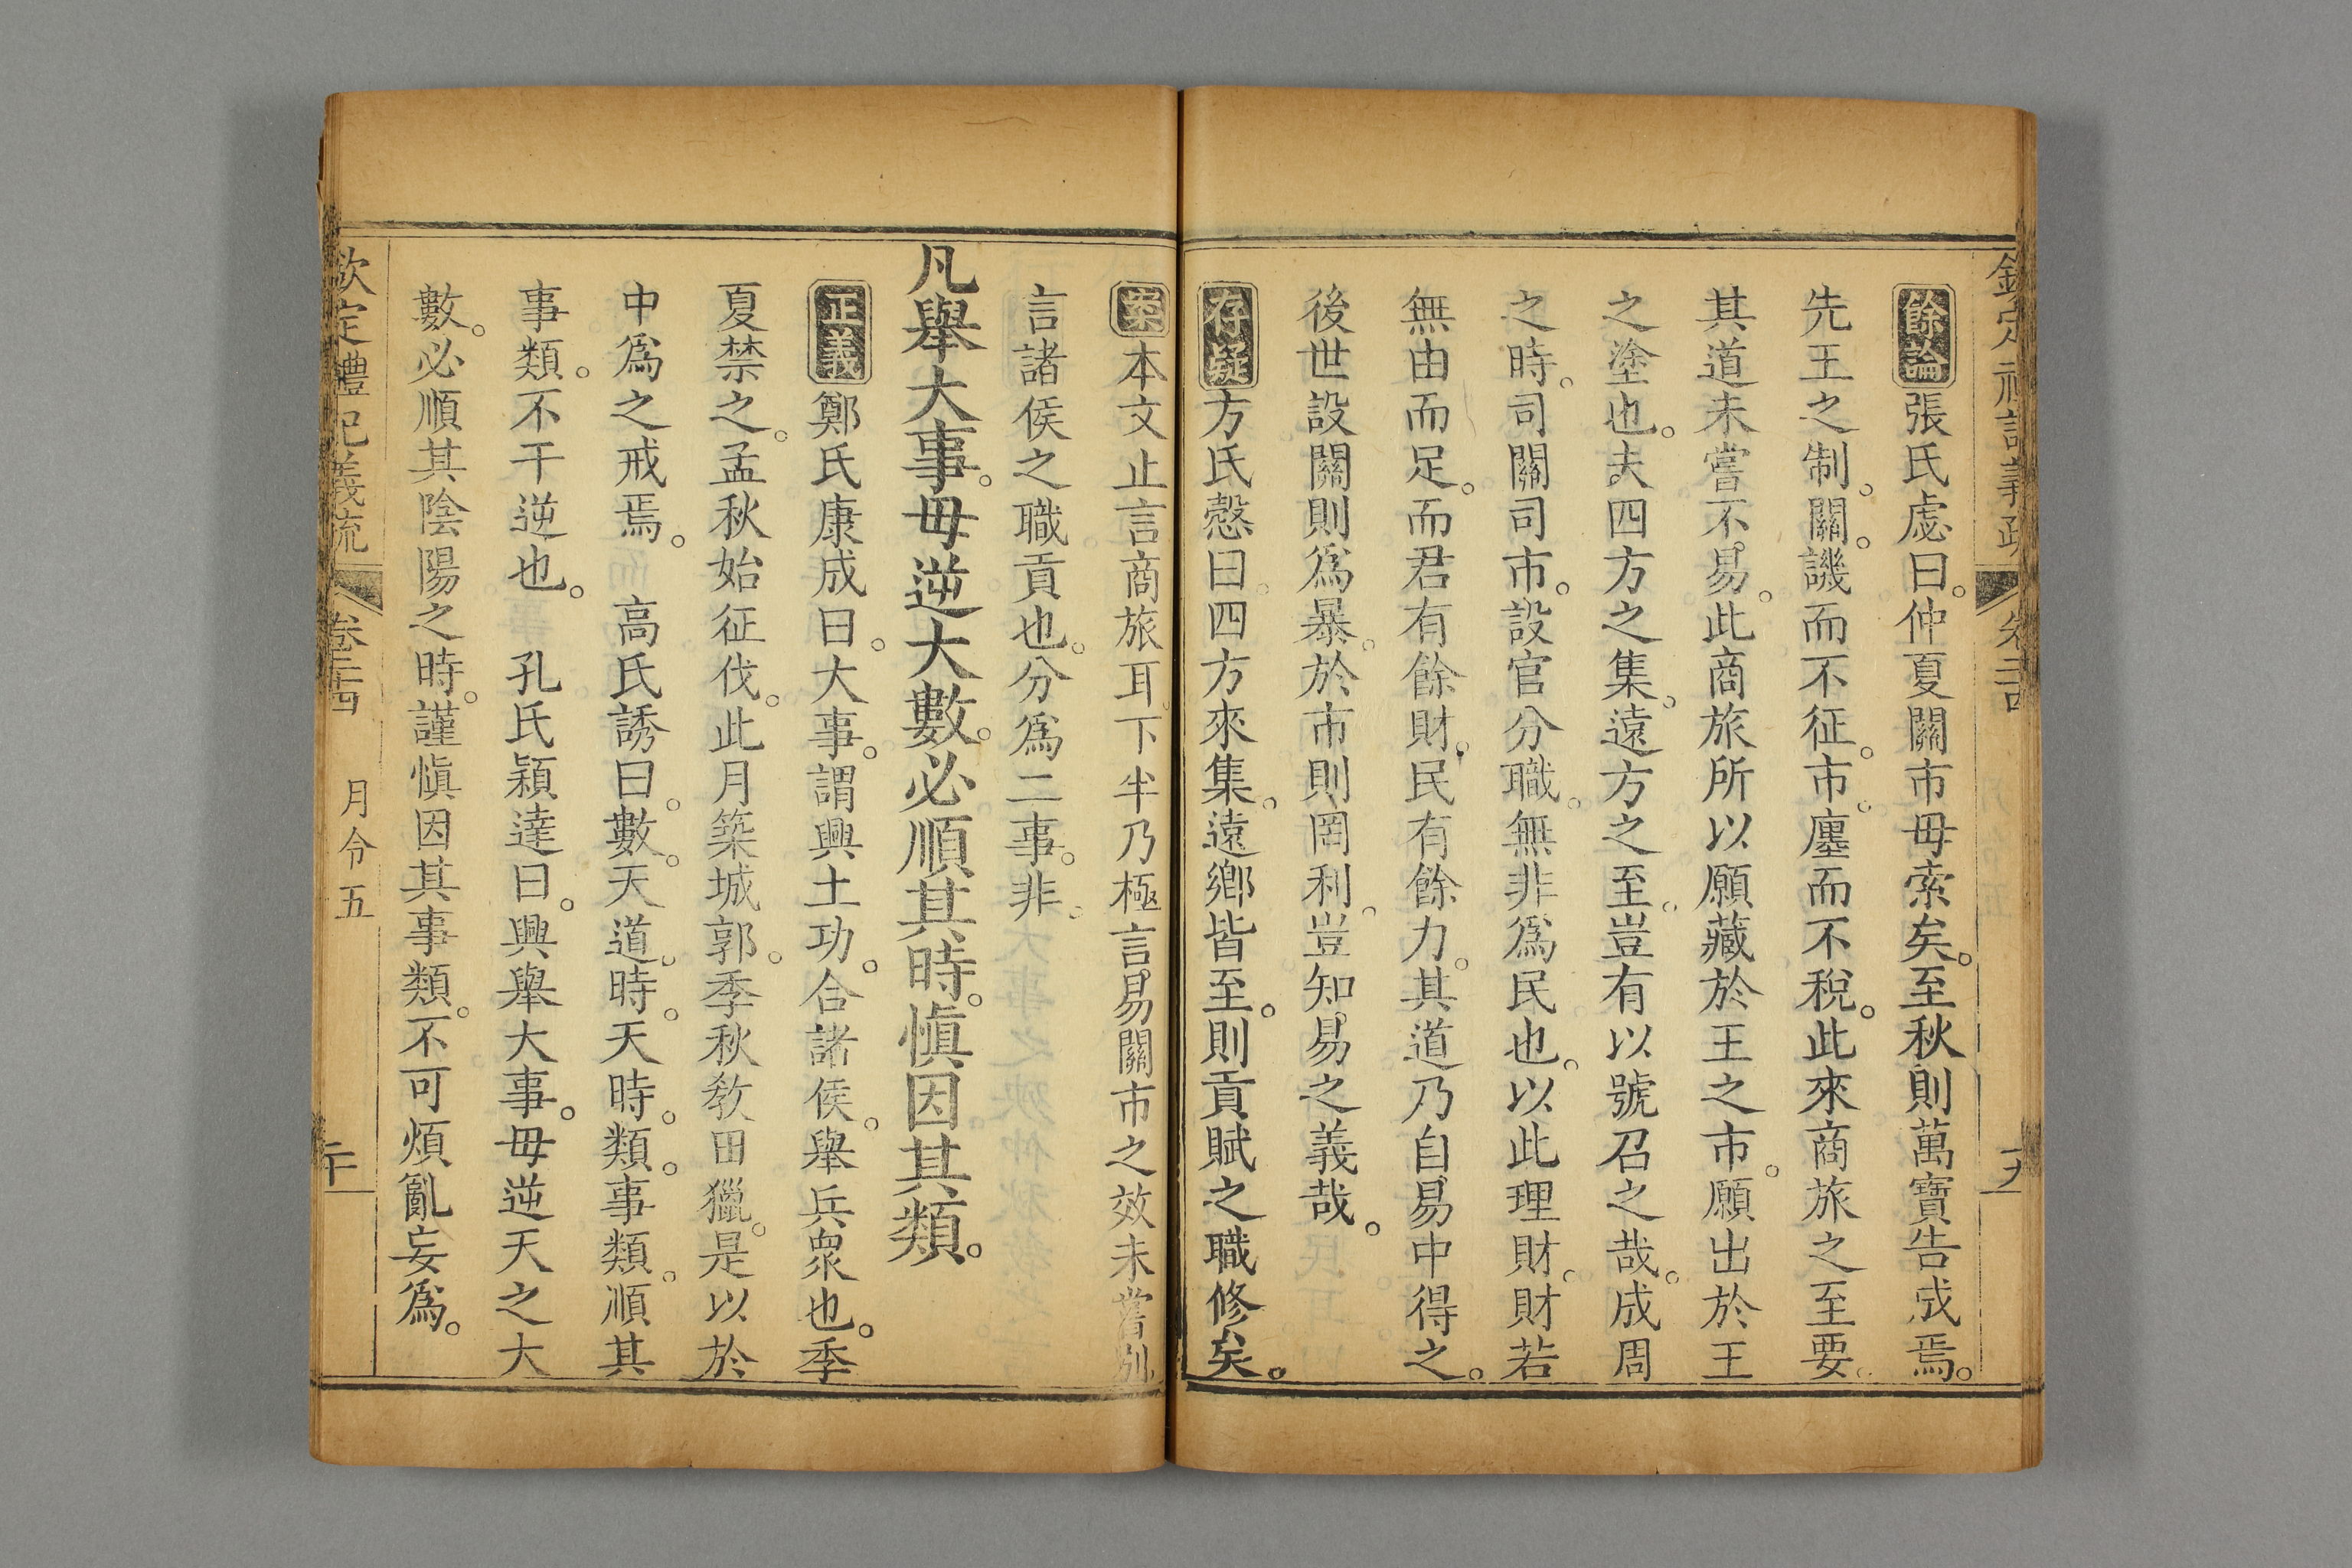 欽定禮記義疏 卷二十四 十九
餘論張氏虙曰。仲夏關市毋索矣。至秋則萬寶告成焉。
先王之制。關。譏而不征。市。廛而不稅。此來商旅之至要。
其道未嘗不易。此商旅所以願藏於王之市。願出於王
之塗也。夫四方之集。遠方之至。豈有以號召之哉。成周
之時。司關司市。設官分職。無非爲民也。以此理財。財若
無由而足。而君有餘財。民有餘力。其道乃自易中得之。
後世設關則爲暴。於市則罔利。豈知易之義哉。
存疑方氏慤曰四方來集。遠鄉皆至。則貢賦之職修矣。
案本文止言商旅耳。下半乃極言易關市之效未嘗別
言諸侯之職貢也。分爲二事。非。
凡舉大事。毋逆大數。必順其時。愼因其類。
正義鄭氏康成曰。大事。謂興土功。合諸侯。舉兵衆也。季
夏禁之。孟秋始征伐。此月築城郭。季秋敎田獵。是以於
中爲之戒焉。 高氏誘曰。數。天道。時。天時。類。事類。順其
事類。不干逆也。 孔氏穎達曰。興舉大事。毋逆天之大
數。必順其陰陽之時。謹愼因其事類。不可煩亂妄爲。
欽定禮記義疏 卷二十四 月令五 二十